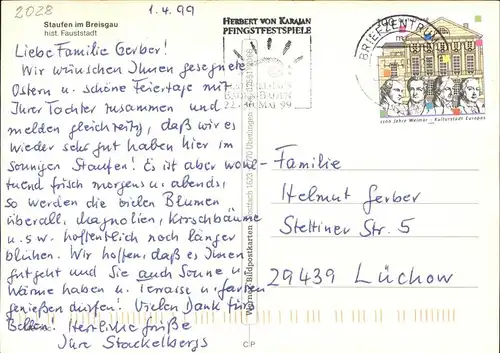 2028
Staufen im Breisgau
hist. Fauststadt
1.4.99
HERBERT VON KARAJAN
PFINGSTFESTSPIELE
22.-30. MAI 99
BRIEFZENTRUM
1100 Jahre Weimar Kulturstadt Europas
Liebe Familie Gerber!
Wir wünschen Ihnen gesegnete
Ostern u. schöne Feiertage mit
Ihrer Tochter zusammen und
melden gleichzeitig, daß wir es
wieder sehr gut haben hier im
sonnigen Staufen! Es ist aber wohl-
tuend frisch morgens u. abends,
so werden die vielen Blumen
überall, Magnolien, Kirschbäume
u.s.w. hoffentlich noch länger
blühen. Wir hoffen, daß es Ihnen
gut geht und Sie auch Sonne u.
Wärme haben u. Terrasse u. Garten
genießen dürfen! Vielen Dank fürs
Herzliche Grüße
Ihre Stackelbergs
Werner Bildpostkarten
Überlingen
CP
Familie
Helmut Gerber
Stettiner Str. 5
29439 Lüchow